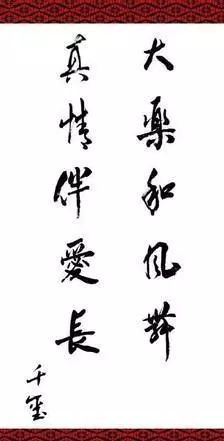 大樂和风舞
真情伴愛長
千玺